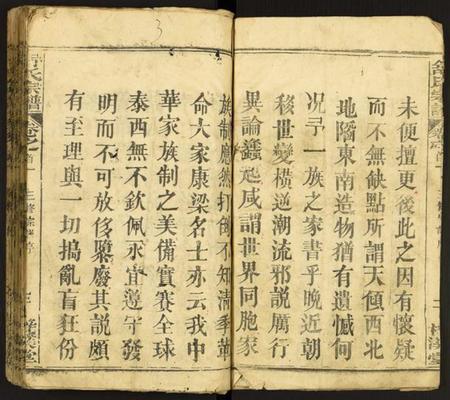 未便擅更後此之因有懷疑
而不無缺點所謂天傾西北
地陷東南造物猶有遺憾何
况乎一族之家書乎晚近朝
移世變橫逆潮流邪説厲行
異論蠭起咸謂世界同胞家
族制應然打倒不知清季革
命大家康梁名士亦云我中
華家族制之美備實賽全球
泰西無不欽佩永宜遵守發
明而不可放侈鄴廢其説頗
有至理與一切搗亂盲狂份
氏宗譜
卷之首
三
3